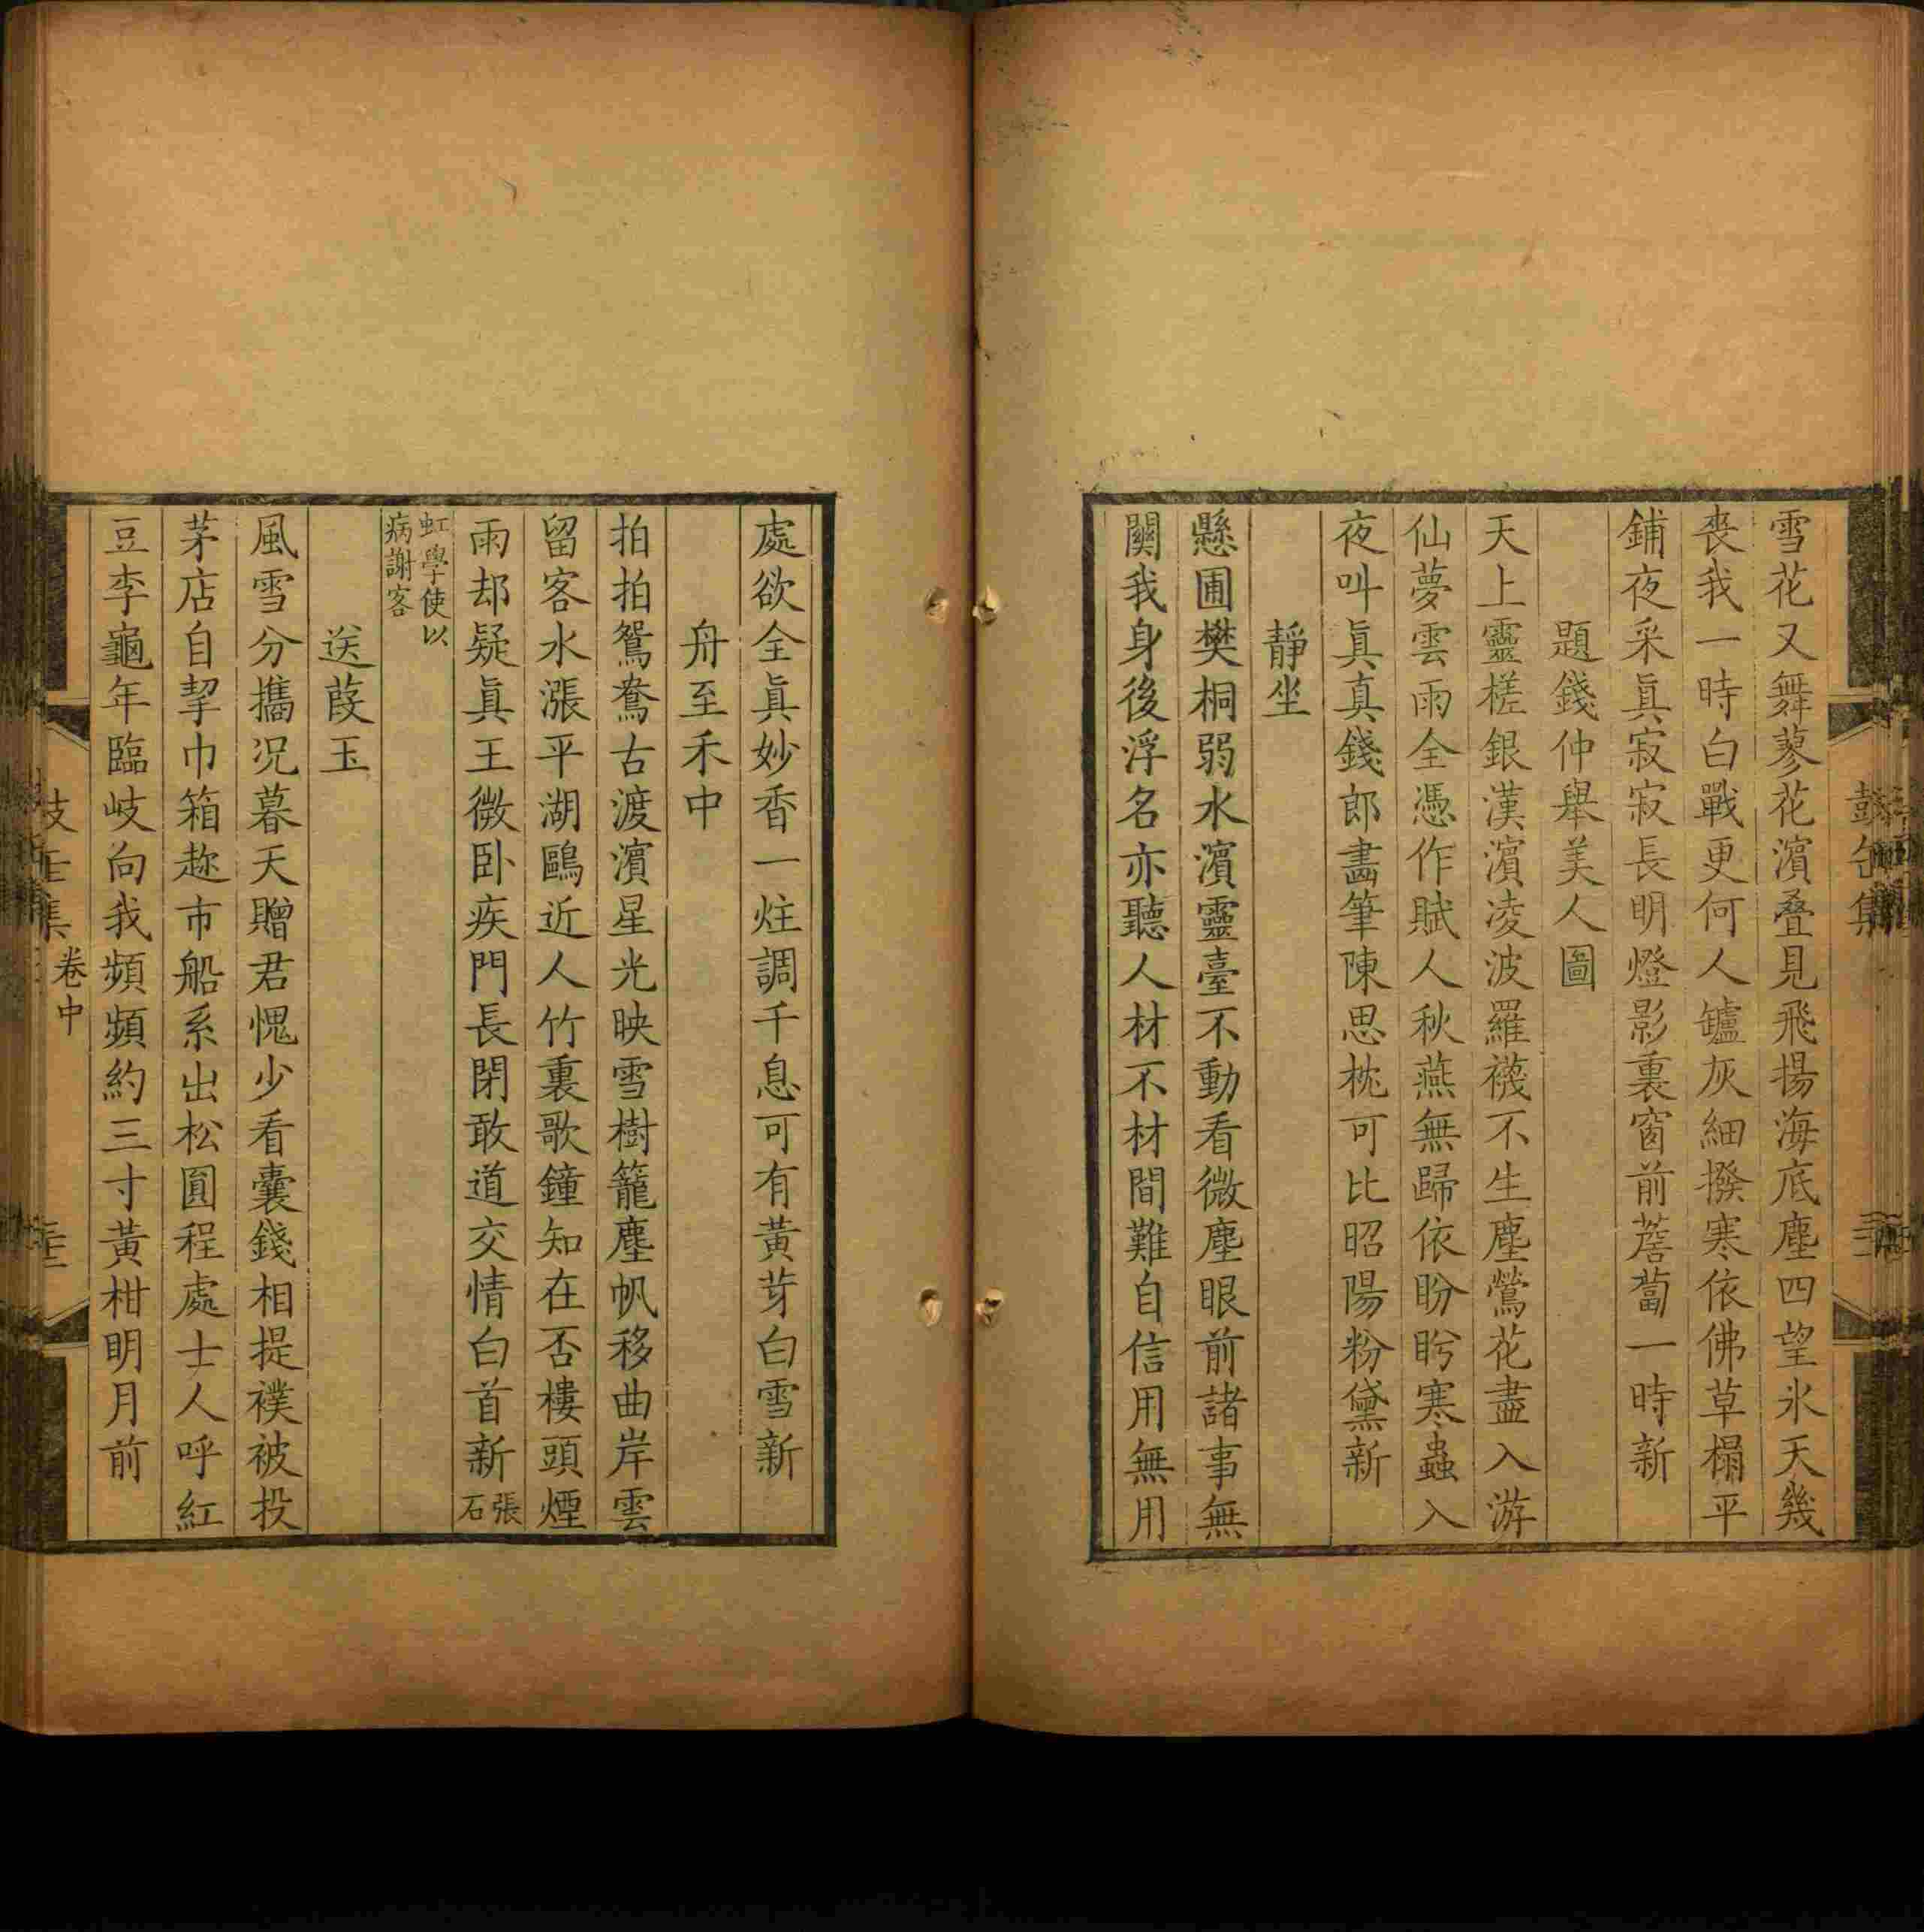 雪花又舞蓼花濱叠見飛揚海底塵四望氷天幾
喪我一時白戰更何人鑪灰細撥寒依佛草榻平
鋪夜采眞寂寂長明燈影裏窗前薝蔔一時新
題錢仲舉美人圖
天上靈槎銀漢濱凌波羅襪不生塵鶯花盡入游
仙夢雲雨全憑作賦人秋燕無歸依盼盻寒蟲入
夜叫眞真錢郎畵筆陳思枕可比昭陽粉黛新
靜坐
懸圃樊桐弱水濱靈臺不動看微塵眼前諸事無
關我身後浮名亦聽人材不材間難自信用無用
處欲全眞妙香一炷調千息可有黃芽白雪新
舟至禾中
拍拍鴛鴦古渡濱星光映雪樹籠塵帆移曲岸雲
留客水漲平湖鷗近人竹裏歌鐘知在否樓頭煙
雨却疑眞王微卧疾門長閉敢道交情白首新張石
虹學使以病謝客
送葭玉
風雪分攜况暮天贈君愧少看囊錢相提襆被投
茅店自挈巾箱趂市船系出松圓程處士人呼紅
豆李龜年臨岐向我頻頻約三寸黃柑明月前
卷中